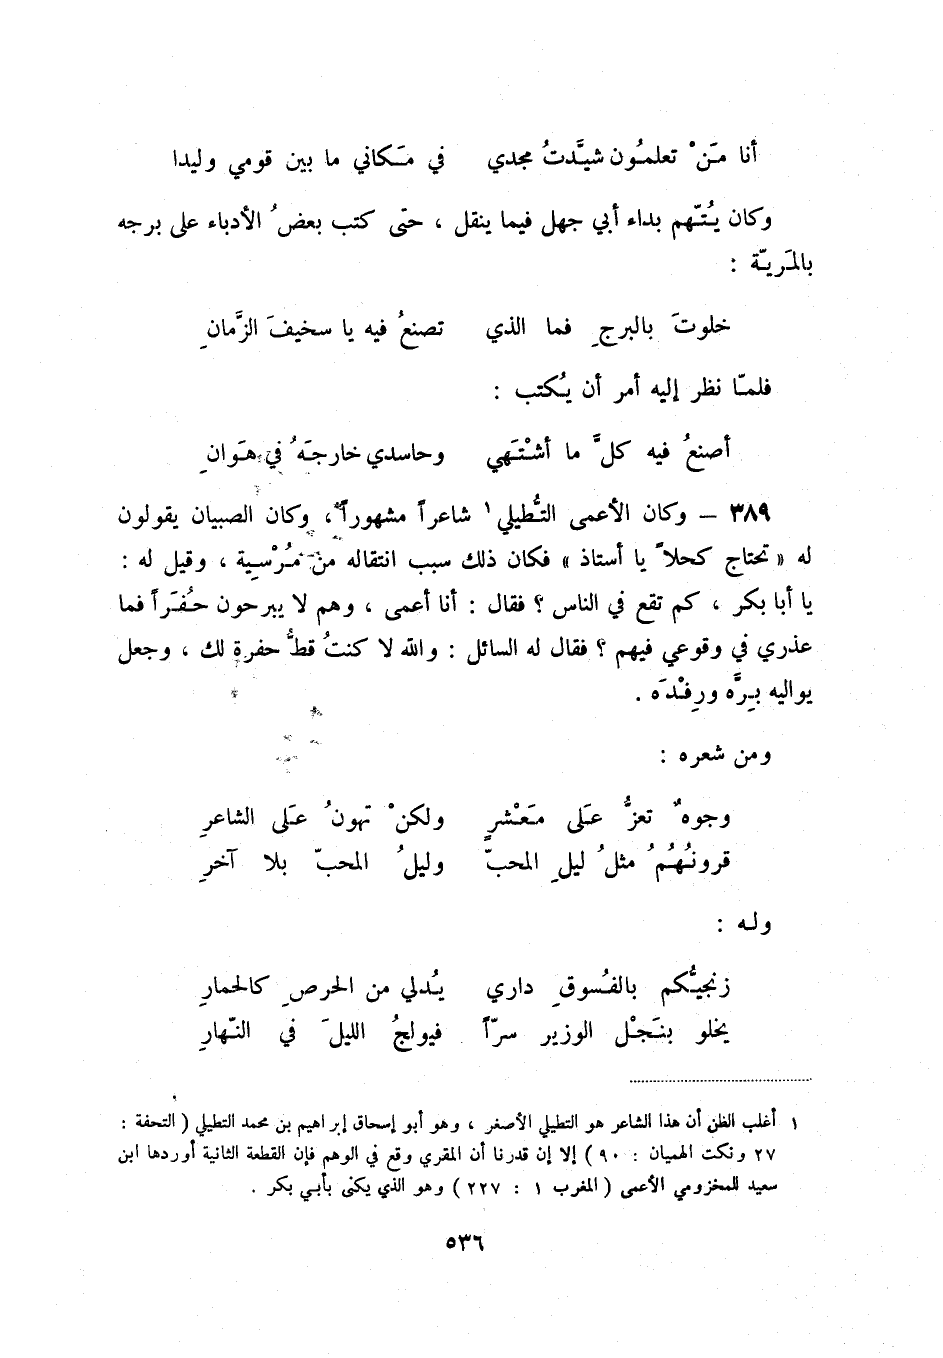 أنا مَنْ تعلمُون شيَّدتُ مجدي في مَكاني ما بين قومي وليدا
وكان يُتّهم بداء أبي جهل فيما ينقل ، حتّى كتب بعضُ الأدباء على برجه
بالمَريّة :
خلوتَ بالبرجِ فما الذي تصنعُ فيه يا سخيفَ الزَّمانِ
فلمّا نظر إليه أمر أن يُكتب :
أصنعُ فيه كلَّ ما أشْتَهي وحاسدي خارجَهُ في هَوانِ
٣٨٩ – وكان الأعمى التُّطيلي ١ شاعراً مشهوراً ، وكان الصبيان يقولون
له « تحتاج كحلاً يا أستاذ » فكان ذلك سبب انتقاله من مُرْسِية ، وقيل له :
يا أبا بكر ، كم تقع في الناس ؟ فقال : أنا أعمى ، وهم لا يبرحون حُفَراً فما
عذري في وقوعي فيهم ؟ فقال له السائل : والله لا كنتُ قطُّ حفرة لك ، وجعل
يواليه بِرَّه ورِفْدَه .
ومن شعره :
وجوهٌ تعزُّ عَلى مَعْشرٍ ولكنْ تهونُ عَلى الشاعرِ
قرونُهُمُ مثلُ ليلِ المحبّ وليلُ المحبّ بلا آخرِ
وله :
زنجيُّكم بالفُسوقِ داري يُدلي من الحرصِ كالحمارِ
يخلو بنَجْل الوزير سرّاً فيولجُ الليلَ في النّهارِ
١ أغلب الظن أن هذا الشاعر هو التطيلي الأصغر ، وهو أبو إسحاق إبراهيم بن محمد التطيلي ( التحفة :
٢٧ ونكت الهميان : ٩٠ ) إلا إن قدرنا أن المقري وقع في الوهم فإن القطعة الثانية أوردها ابن
سعيد للمخزومي الأعمى ( المغرب ١ : ٢٢٧ ) وهو الذي يكنى بأبي بكر .
٥٣٦